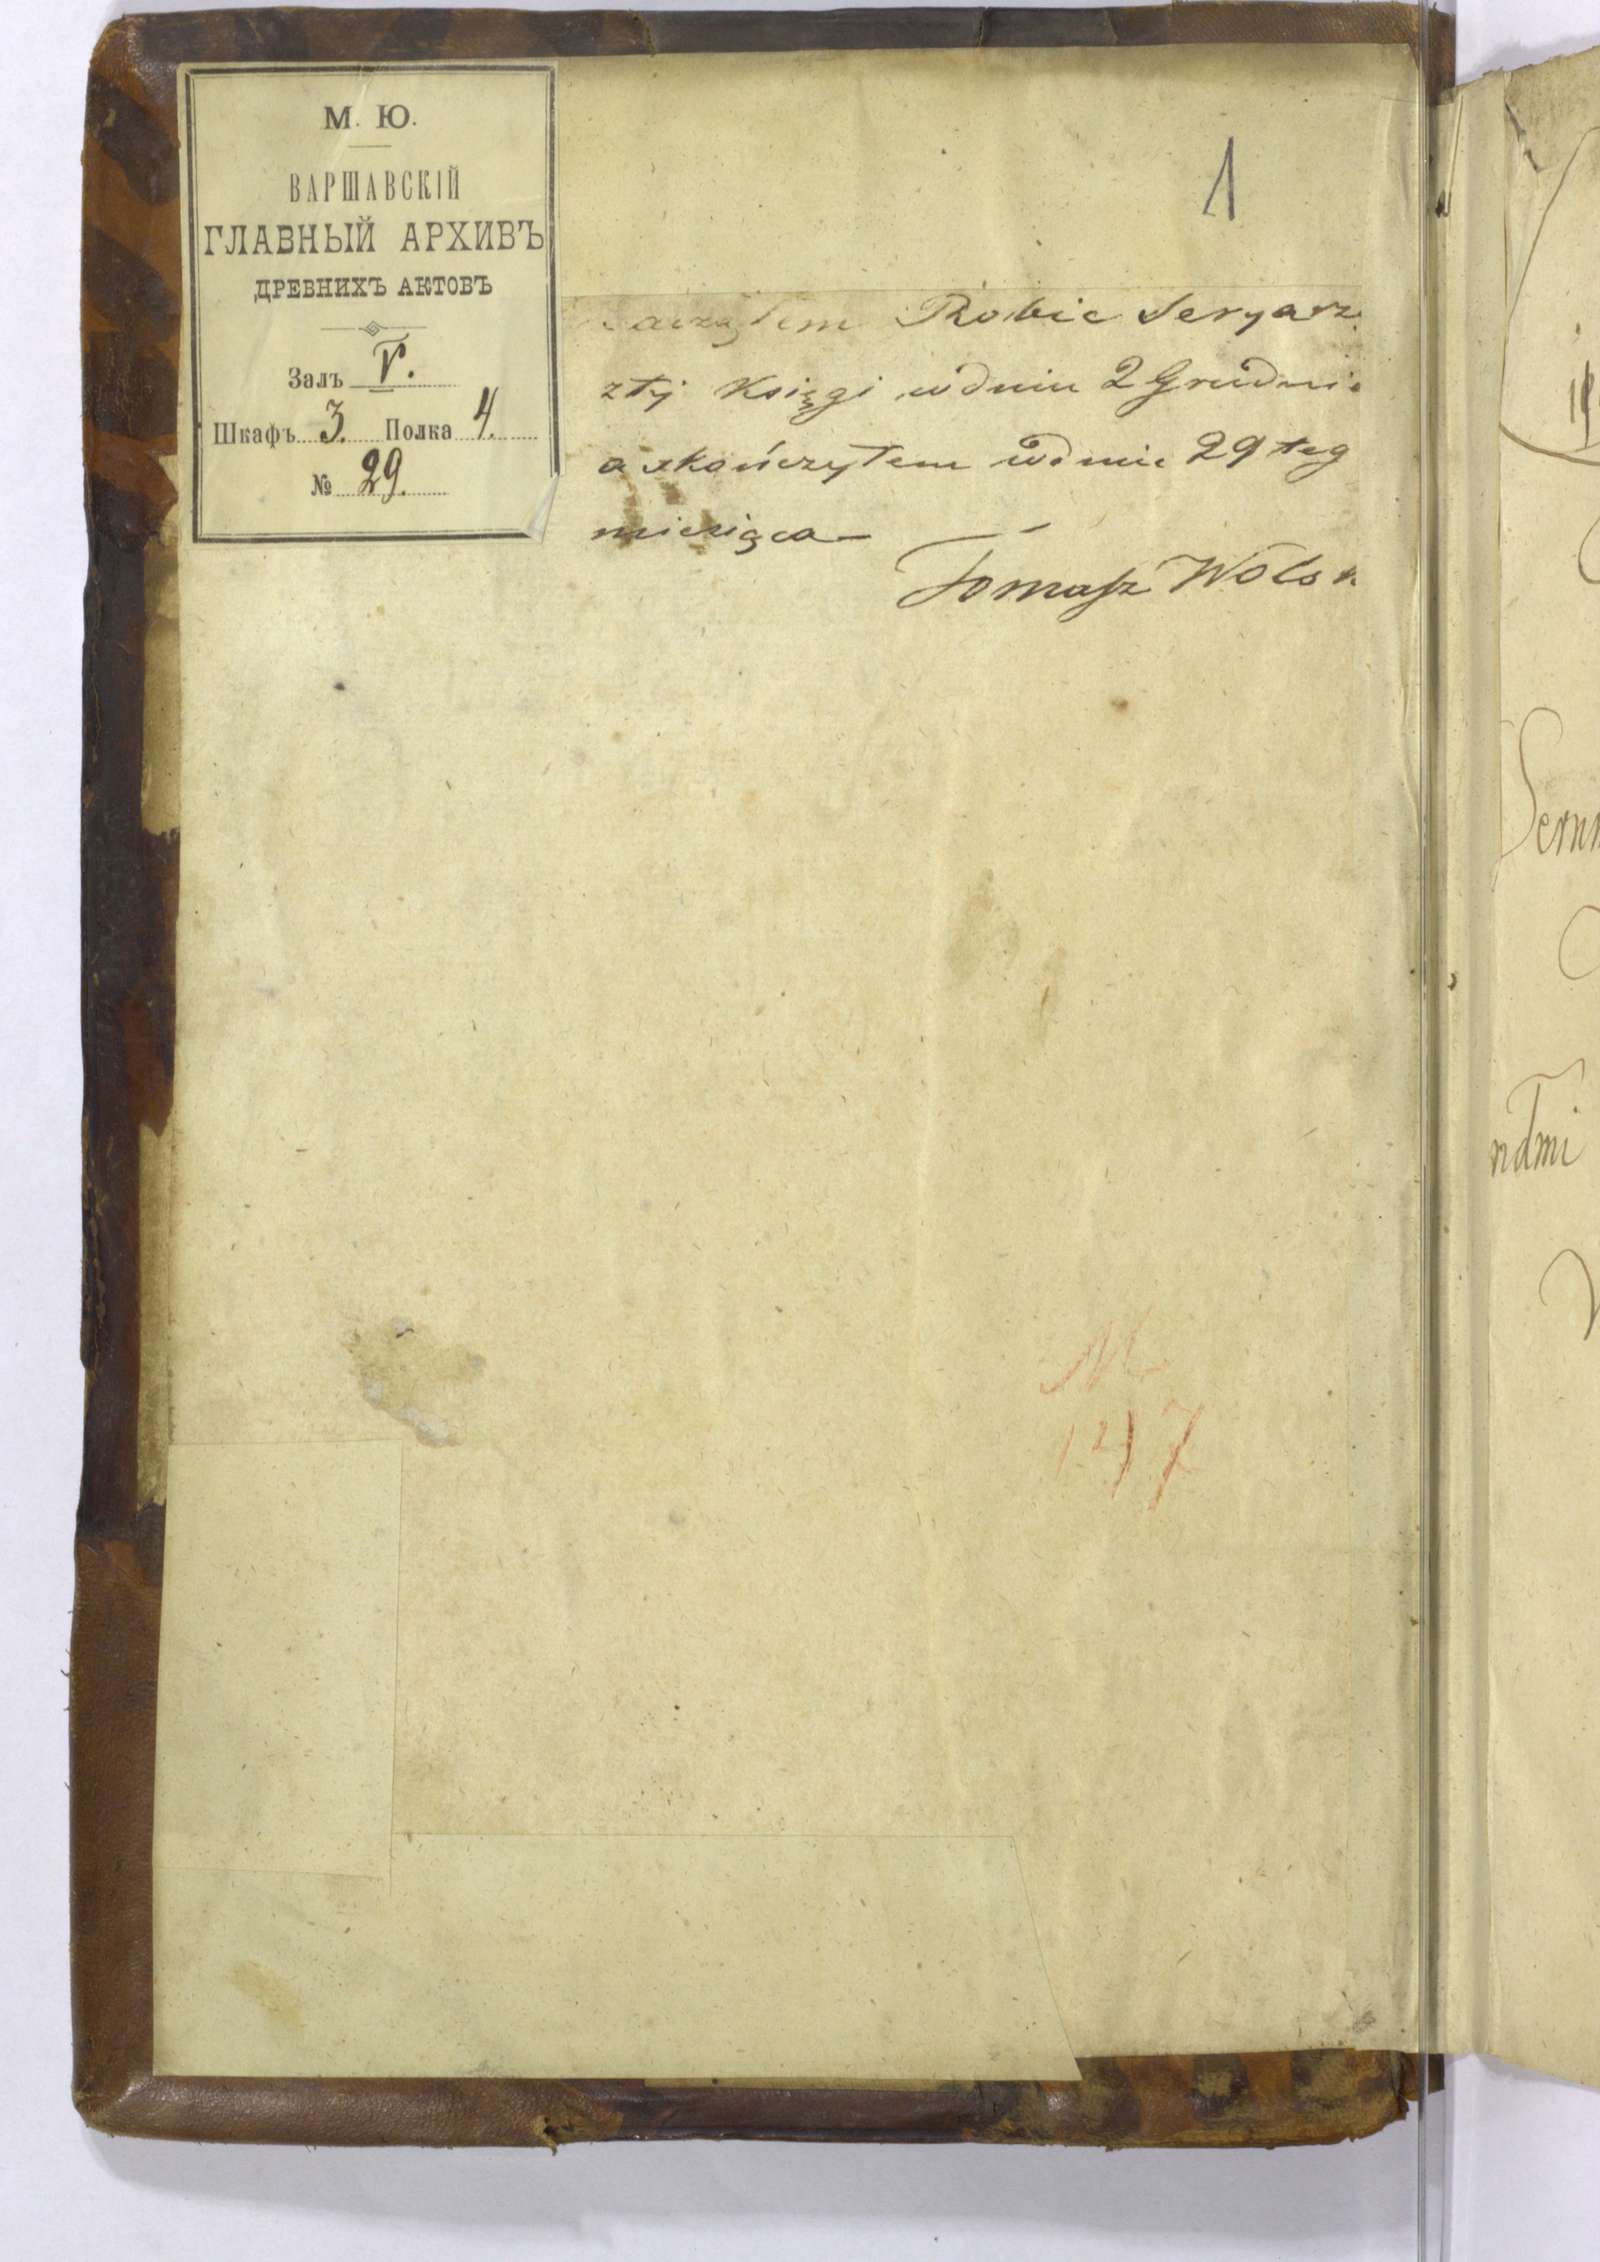 М. Ю.
ВАРШАВСКІЙ
ГЛАВНЫЙ АРХИВЪ
ДРЕВНИХЪ АКТОВЪ
Залъ V.
Шкафъ 3. Полка 4.
№ 29.
1
Robic Seryarz
z téj Księgi w dniu 2 Grudni
a skończyłem w dniu 29 teg
miesiąca
Tomasz Wols
247